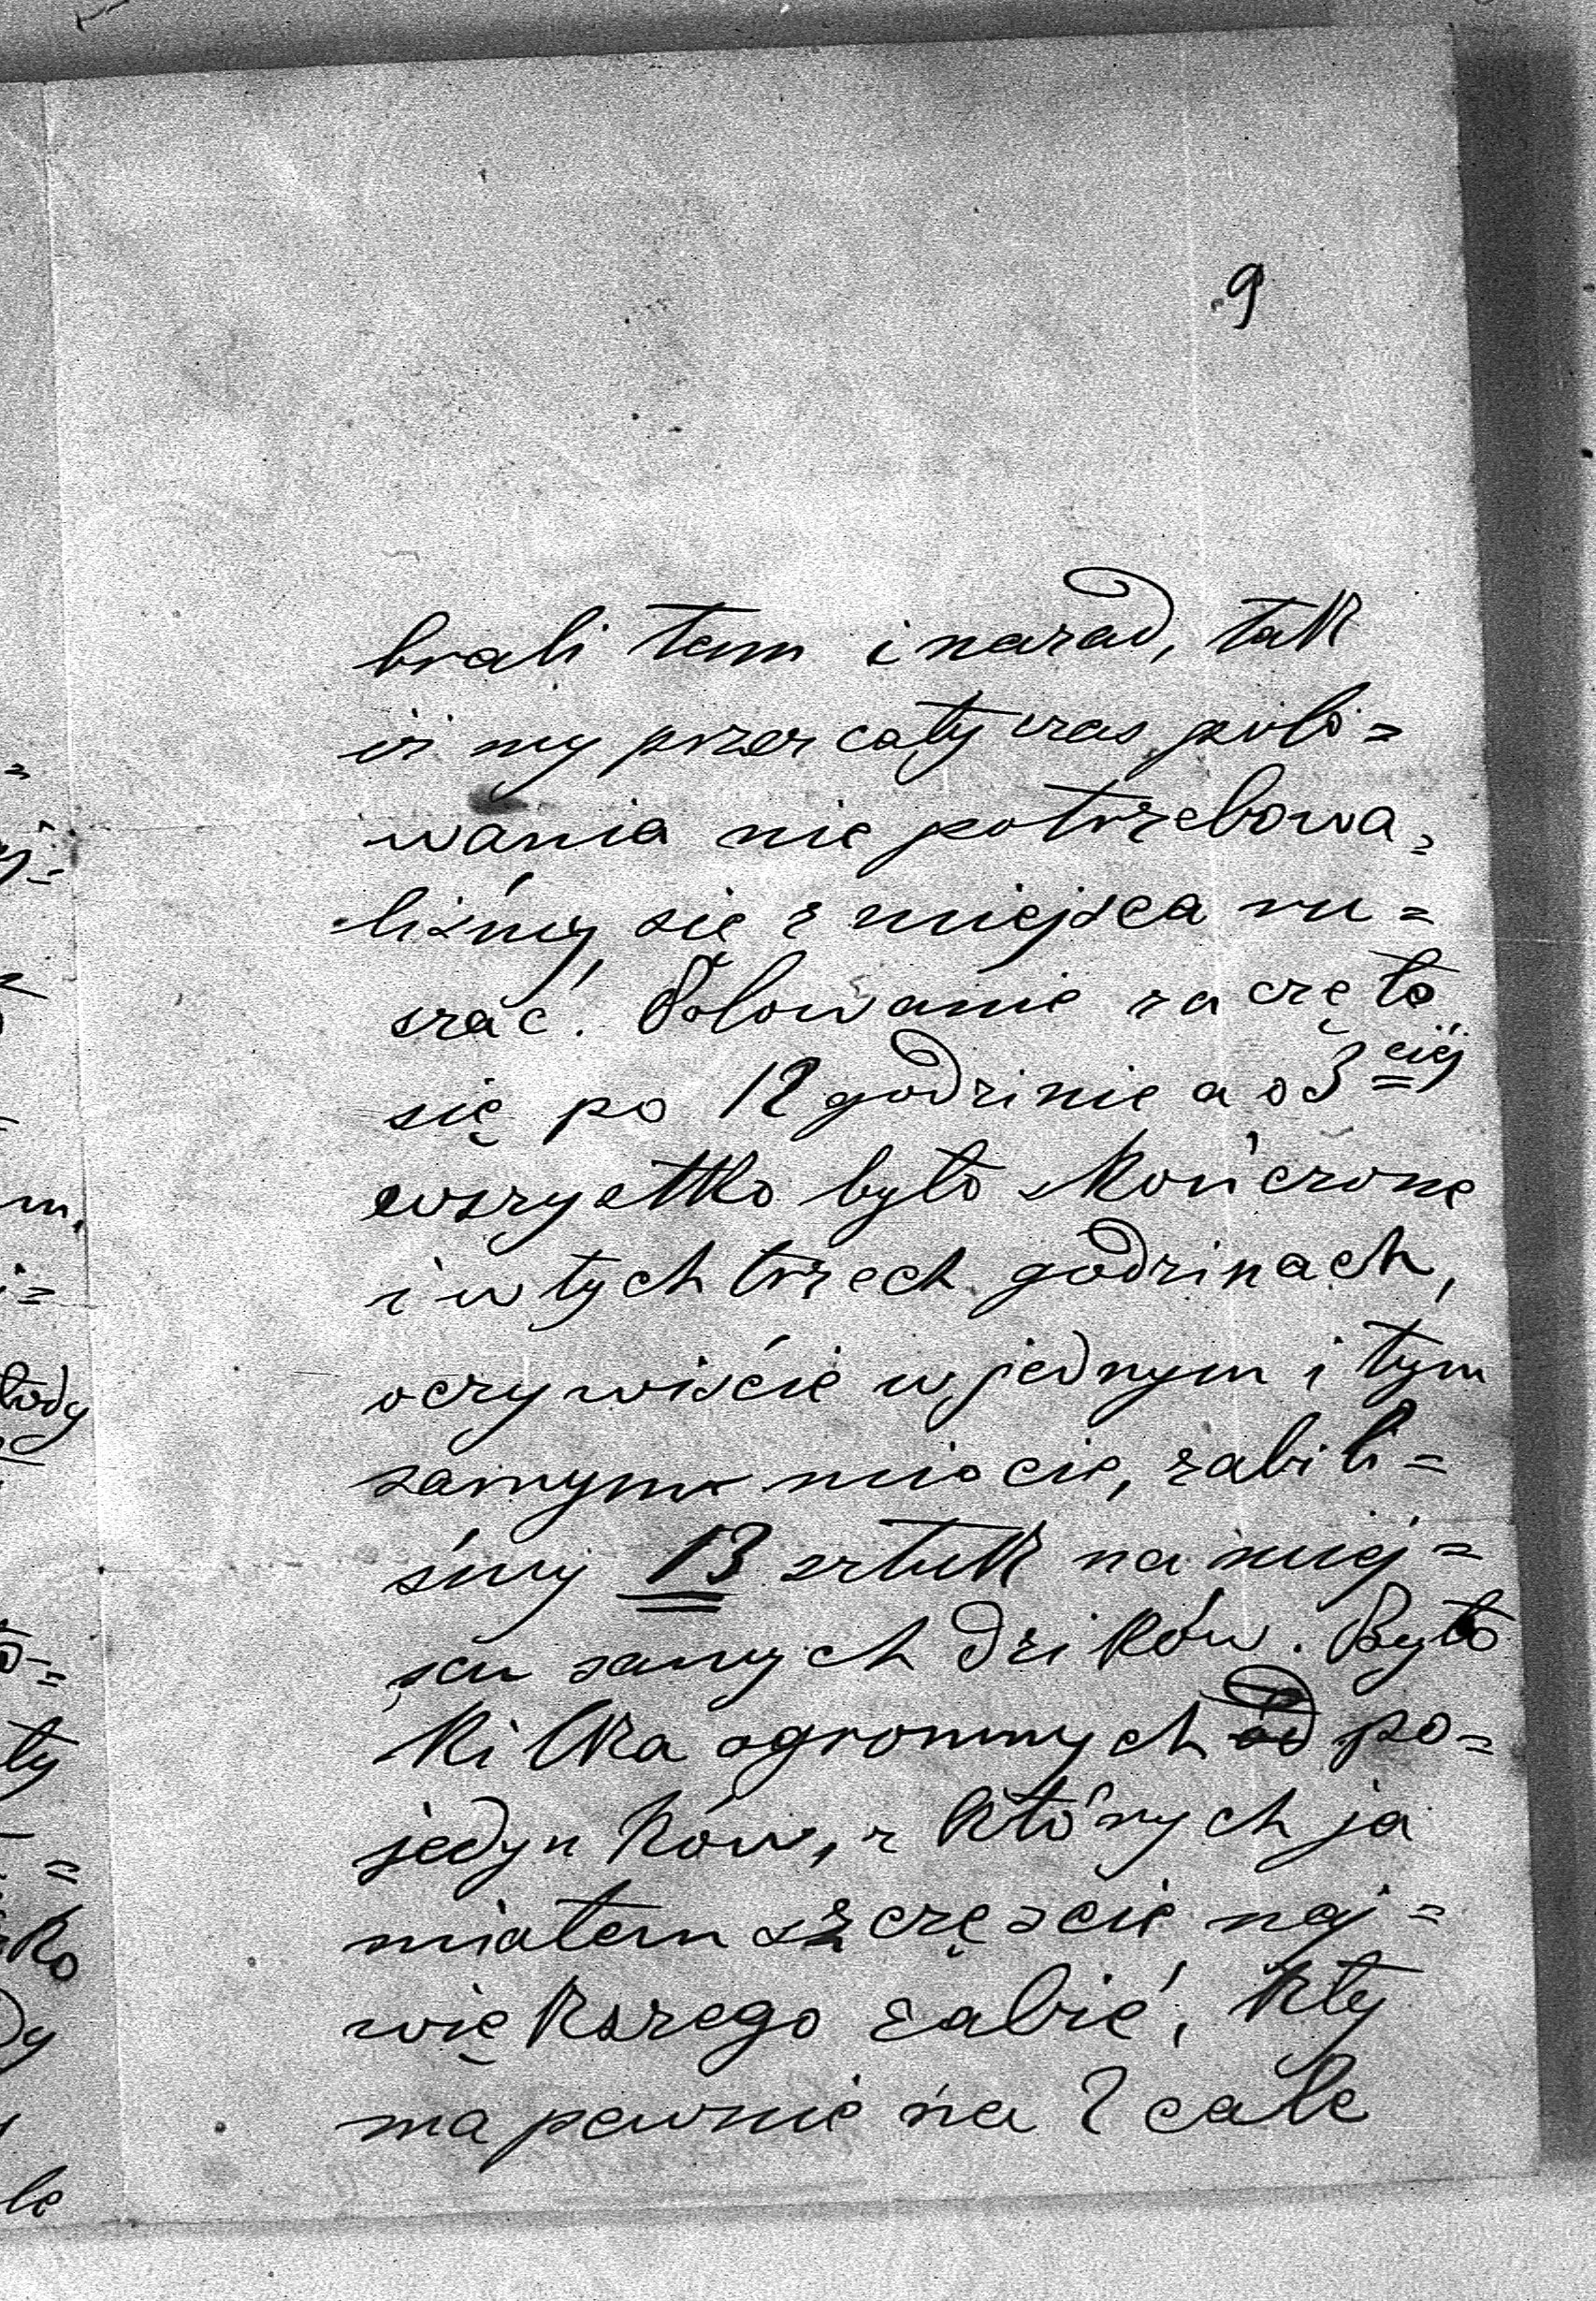 9
brali tam i narad, tak
iż my przez cały czas polo=
wania nie potrzebowa=
liśmy się z miejsca ru=
szać. Polowanie zaczęło
się po 12 godzinie a o 3ciej
wszystko było skończone
i w tych trzech godzinach,
oczywiście w jednym i tym
samym miocie, zabili=
śmy 13 sztuk na miej=
scu samych dzików. Było
kilka ogromnych od po=
jedynków, z których ja
miałem szczęście naj=
większego zabić, kły
ma pewnie na 2 cale